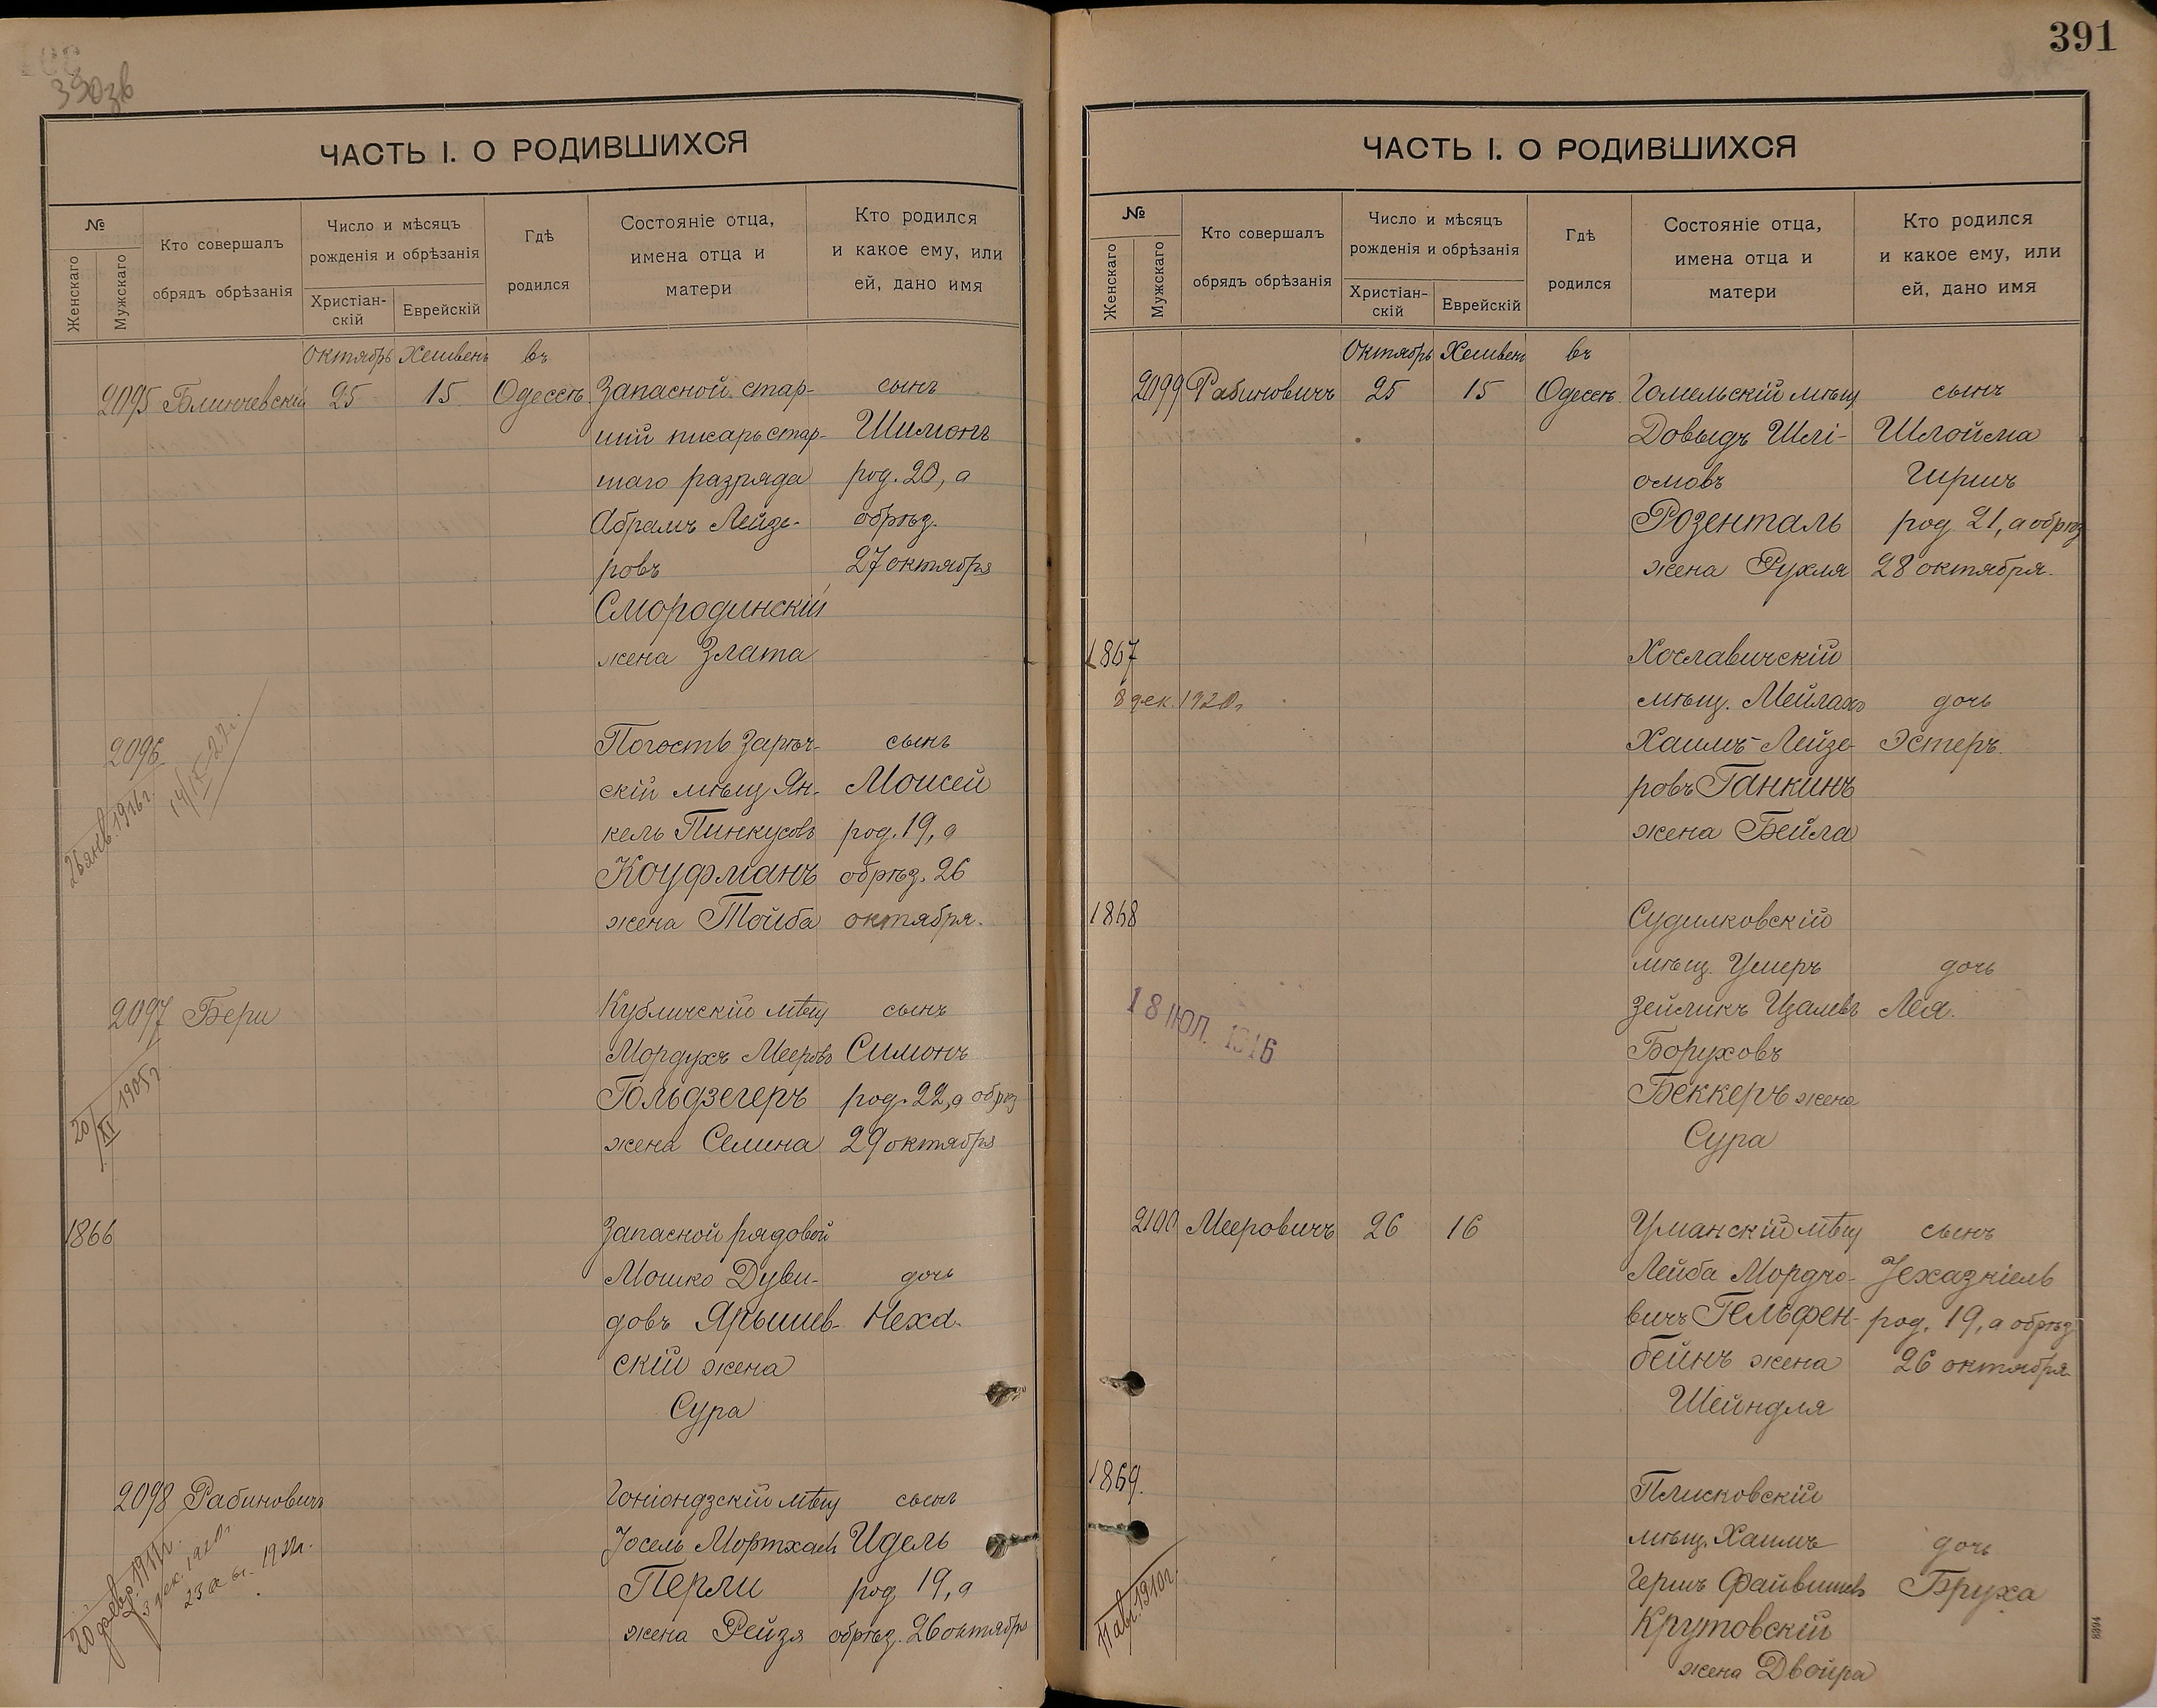 390зв
ЧАСТЬ I. О РОДИВШИХСЯ
№
Женскаго
Мужскаго
Кто совершалъ
обрядъ обрѣзанія
Число и мѣсяцъ
рожденія и обрѣзанія
Христіан-
скій
Еврейскій
Гдѣ
родился
Состояніе отца,
имена отца и
матери
Кто родился
и какое ему, или
ей, дано имя
Октябрь Хешвенъ въ
2095 Блинчевскій 25 15 Одессѣ Запасной стар- сынъ
шій писарь стар- Шимонъ
шаго разряда род. 20, а
Абрамъ Лейзе- обрѣз.
ровъ 27 октября
Смородинскій
жена Злата
2096 Погостъ Зарѣч- сынъ
26 янв. 1916 г.
скій мѣщ Ян- Моисей
кель Пинкусовъ род. 19, а
Кауфманъ обрѣз. 26
жена Тойба октября.
2097 Бери Кубличскій мѣщ сынъ
20/XI 1905 г
Мордухъ Мееровъ Симонъ
Гольдзегеръ род. 22, а обрѣз
жена Селина 29 октября
1866 Запасной рядовой
Мошко Дуви- дочь
довъ Ярышев- Неха.
скій жена
Сура
2098 Рабиновичъ Гоніондзскій мѣщ сынъ
Іосель Мортхаевъ Идель
Перли род 19, а
жена Рейзя обрѣз. 26 октября
391
ЧАСТЬ I. О РОДИВШИХСЯ
№
Женскаго
Мужскаго
Кто совершалъ
обрядъ обрѣзанія
Число и мѣсяцъ
рожденія и обрѣзанія
Христіан-
скій
Еврейскій
Гдѣ
родился
Состояніе отца,
имена отца и
матери
Кто родился
и какое ему, или
ей, дано имя
Октябрь Хешвенъ въ
2099 Рабиновичъ 25 15 Одессѣ Гомельскій мѣщ сынъ
Довыдъ Шлі- Шлойма
омовъ Гиршъ
Розенталь род 21, а обрѣз
жена Рухля 28 октября.
1867 Хославичскій
8 дек. 1920 г мѣщ. Мейлахъ дочь
Хаимъ-Лейзе- Эстеръ.
ровъ Ганкинъ
жена Бейла
1868 Судилковскій
мѣщ. Ушеръ дочь
18 ІЮЛ. 1916 Зейликъ Ицалевъ Лея.
Боруховъ
Беккеръ жена
Сура
2100 Мееровичъ 26 16 Уманскій мѣщ сынъ
Лейба Мордко- Іехазкіель
вичъ Гельфен- род. 19, а обрѣз
бейнъ жена 26 октября
Шейндля
1869. Плисковскій
мѣщ. Хаимъ дочь
11 авг. 1910 г. Гершъ Файвишевъ Бруха
Крутовскій
жена Двойра